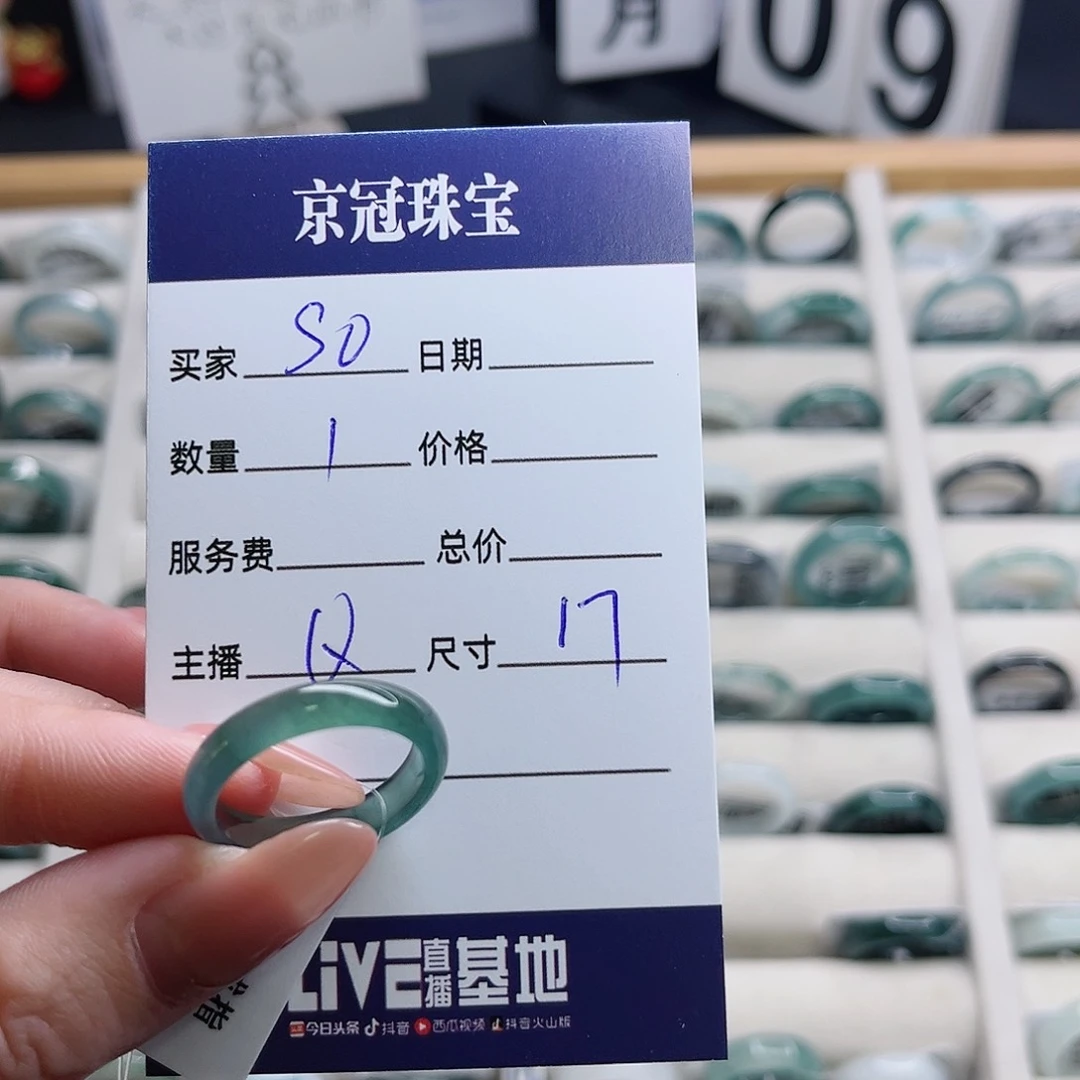 月 09
京冠珠宝
买家 SO 日期
数量 1 价格
服务费 总价
主播 Q 尺寸 17
LIVE直播基地
今日头条 抖音 西瓜视频 抖音火山版